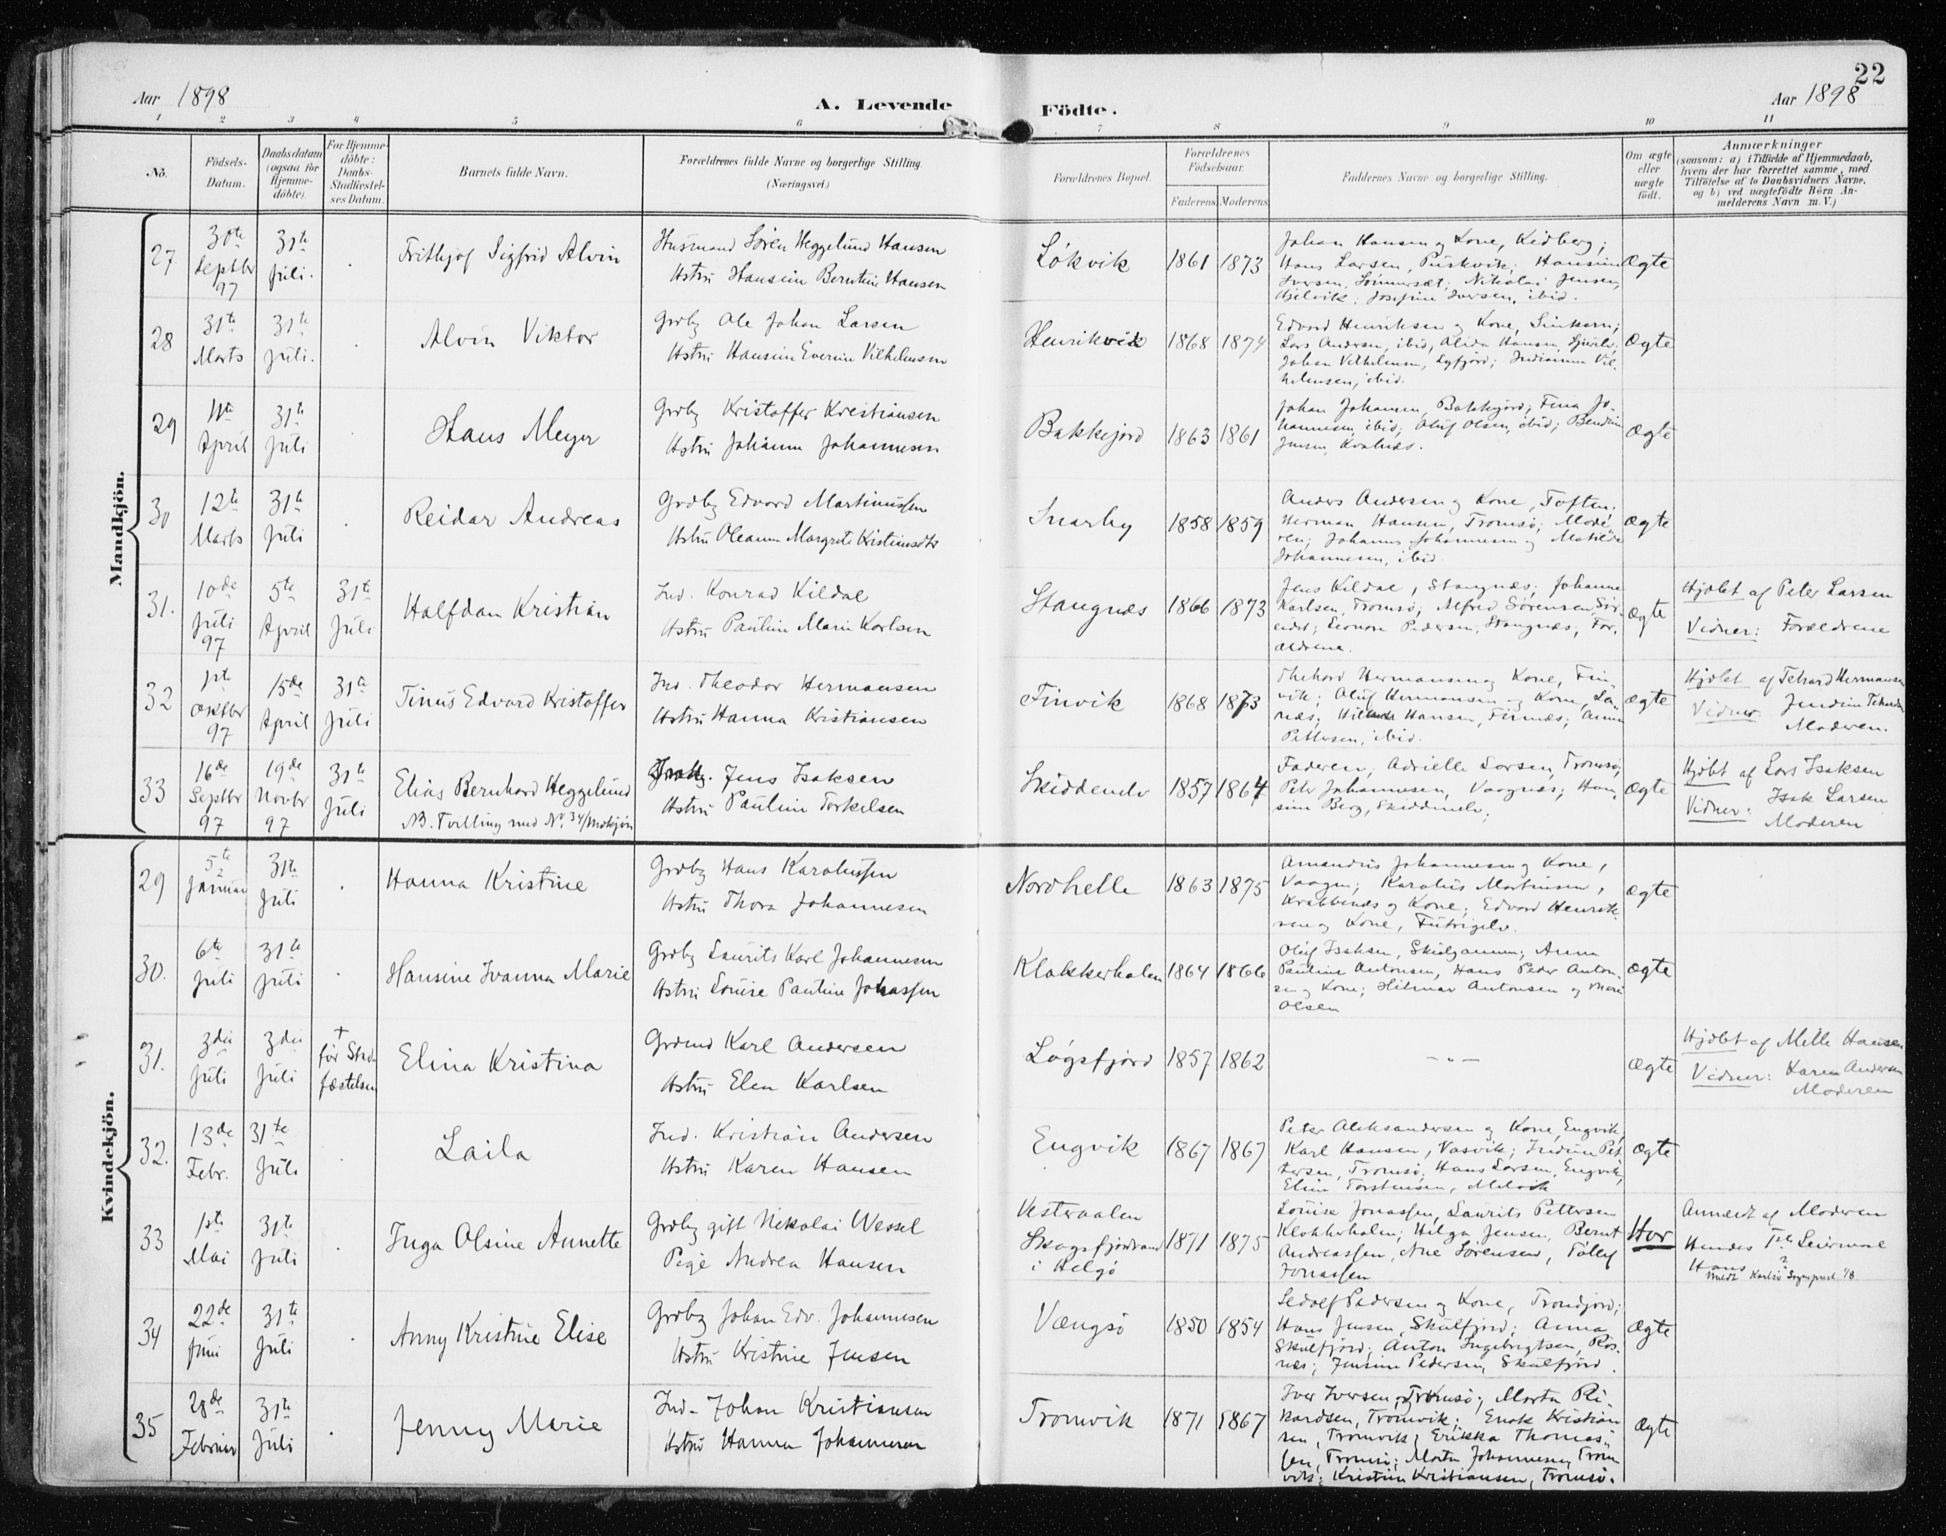 22
Aar 1898
A. Levende
Födte.
Aar 1898
1 2 3 4 5 6 7 8 9 10 11
No.
Födsels-
Datum.
Daabsdatum
(ogsaa for
Hjemme-
döbte).
For Hjemme-
döbte:
Daabs-
Stadfæstel-
ses Datum.
Barnets fulde Navn.
Forældrenes fulde Navne og borgerlige Stilling.
(Næringsvei.)
Forældrenes Bopæl.
Forældrenes
Födselsaar.
Faderens. Moderens.
Faddernes Navne og borgerlige Stilling.
Om ægte
eller
uægte
födt.
Anmærkninger
(saasom: a) i Tilfælde af Hjemmedaab,
hvem der har forrettet samme, med
Tilföielse af to Daabsvidners Navne,
og b) ved uægtefödte Börn An-
melderens Navn m. V.)
Mandkjön.
27
30te
Septbr
97
31te
Juli.
Frithjof Sigfrid Alvin
Husmand Søren Heggelund Hansen
Hstru Hansine Berntine Hansen
Løkvik
1861 1873
Johan Hansen og Kone, Kidberg;
Hans Larsen, Puskvik; Hansine
Iversen, Sommersæt; Nikolai Jensen,
Iversen, ibid.
Ægte
28
31te
Marts
31te
Juli.
Alvin Viktor
Grdbr Ole Johan Larsen
Hstru Hansine Everine Vilhelmsen
Henrikvik
1868 1874
Edvard Henriksen og Kone,
Lars Andersen, ibid, Alida Hansen,
Johan Vilhelmsen, Lyfjord; Vil-
helmsen, ibid.
Ægte
29
11te
April
31te
Juli
Hans Meyer
Grdbr Kristoffer Kristiansen
Hstru Johanna Johannesen
Bakkejord
1863 1861
Johan Johansen, Bakkejord; Fina Jo-
hannesen, ibid; Oluf Olsen, ibid;
Jensen, Kvalnæs.
Ægte
30
12te
Marts
31te
Juli
Reidar Andreas
Grdbr Edvard Martinussen
Hstru Oleanna Margrete Kristiansdtr
Snarby
1858 1859
Anders Andersen og Kone, Toften;
Herman Hansen, Tromsø; Mode-
ren; Johannes Johannesen og Matilde
Johannesen, ibid.
Ægte
31.
10de
Juli
97
5te
April
31te
Juli
Halfdan Kristian
Ind. Konrad Kildal
Hstru Pauline Marie Karlsen
Stangnæs
1866 1873
Jens Kildal, Stangnæs; Johanne
Karlsen, Tromsø; Alfred Sørensen, Sør-
eidet; Leonore Pedersen, Stangnæs, For-
ældrene.
Ægte
Hjdbt af Peter Larsen
Vidner: Forældrene
32
1ste
Oktbr
97
15de
April
31te
Juli
Tinus Edvard Kristoffer
Ind. Theodor Hermansen
Hstru Hanna Kristiansen
Finvik
1868 1873
Thehard Hermansen og Kone, Fin-
vik; Oluf Hermansen og Kone,
næs; Hansen, Finnæs; Anna
Pettersen, ibid.
Ægte
Hjdbt af Tehard Hermansen
Vidner:
Moderen.
33
16de
Septbr
97
19de
Novbr
97
31te
Juli
Elias Bernhard Heggelund
NB. Tvilling med Nr. 34/Mdkjøn
Jens Isaksen
Hstru Pauline Torkelsen
Skiddenelv
1857 1864
Faderen, Adrielle Larsen, Tromsø;
Peter Johannesen, Vaagnæs; Han-
sine Berg, Skiddenelv.
Ægte
Hjdbt af Lars Isaksen
Vidner: Isak Larsen
Moderen
Kvindekjön.
29
5te
Januar
31te
Juli
Hanna Kristine
Grdbr Hans Karolussen
Hstru Thora Johannesen
Nordhelle
1863 1875
Amandus Johannesen og Kone,
Vaagen; Karolus Martinsen,
Krabbenæs og Kone; Edvard Henrik-
sen og Kone, Futrigelv.
Ægte
30.
6te
Juli
31te
Juli
Hansine Ivanna Marie
Grdbr Laurits Karl Johannesen
Hstru Louise Pauline Jonassen
Klokkerhalen
1864 1866
Oluf Isaksen, Skulgammen; Anna
Pauline Antonsen, Hans Peder Anton-
sen og Kone; Hilmar Antonsen og Marie
Olsen
Ægte
31.
3die
Juli
3die
Juli
†
før Stad-
fæstelsen
Elina Kristina
Grdmd Karl Andersen
Hstru Elen Karlsen
Løgsfjord
1857 1862
- „ -
Ægte
Hjdbt af Mille Hansen
Vidner: Karen Andersen
Moderen
32.
13de
Febr.
31te
Juli
Laila
Ind. Kristian Andersen
Hstru Karen Hansen
Engvik
1867 1867
Peter Aleksandersen og Kone, Engvik;
Karl Hansen, Vasvik; Pet-
tersen, Tromsø, Hans Larsen, Engvik;
Eline Torstensen,
Ægte
33
1ste
Mai
31te
Juli
Inga Olsine Annette
Grdbr gift Nikolai Wessel
Pige Andrea Hansen
Vesteraalen
Skogsfjordvand
i Helgø
1871 1875
Louise Jonassen, Laurits Pettersen
Klokkerhalen; Helga Jensen, Bernt
Andreassen, Sørensen,
Jonassen
Hor
Anmeldt af Moderen
Hendes
34
22de
Juni
31te
Juli
Anny Kristine Elise
Grdbr Johan Edv. Johannesen
Hstru Kristine Jensen
Vængsø
1850 1854
Sedolf Pedersen og Kone, Trondjord;
Hans Jensen, Skulfjord; Anna
Skulfjord; Anton Ingebrigtsen, Ros-
næs; Jensine Pedersen, Skulfjord.
Ægte
35
28de
Februar
31te
Juli
Jenny Marie
Ind. Johan Kristiansen
Hstru Hanna Johannesen
Tromvik
1871 1867
Iver Iversen, Tromsø; Morten Ri-
kardsen, Tromvik; Enok Kristian-
sen, Tromvik; Erikka Thomas-
sen, Tromsø; Johannesen, Trom-
vik; Kristine Kristiansen, Tromsø.
Ægte